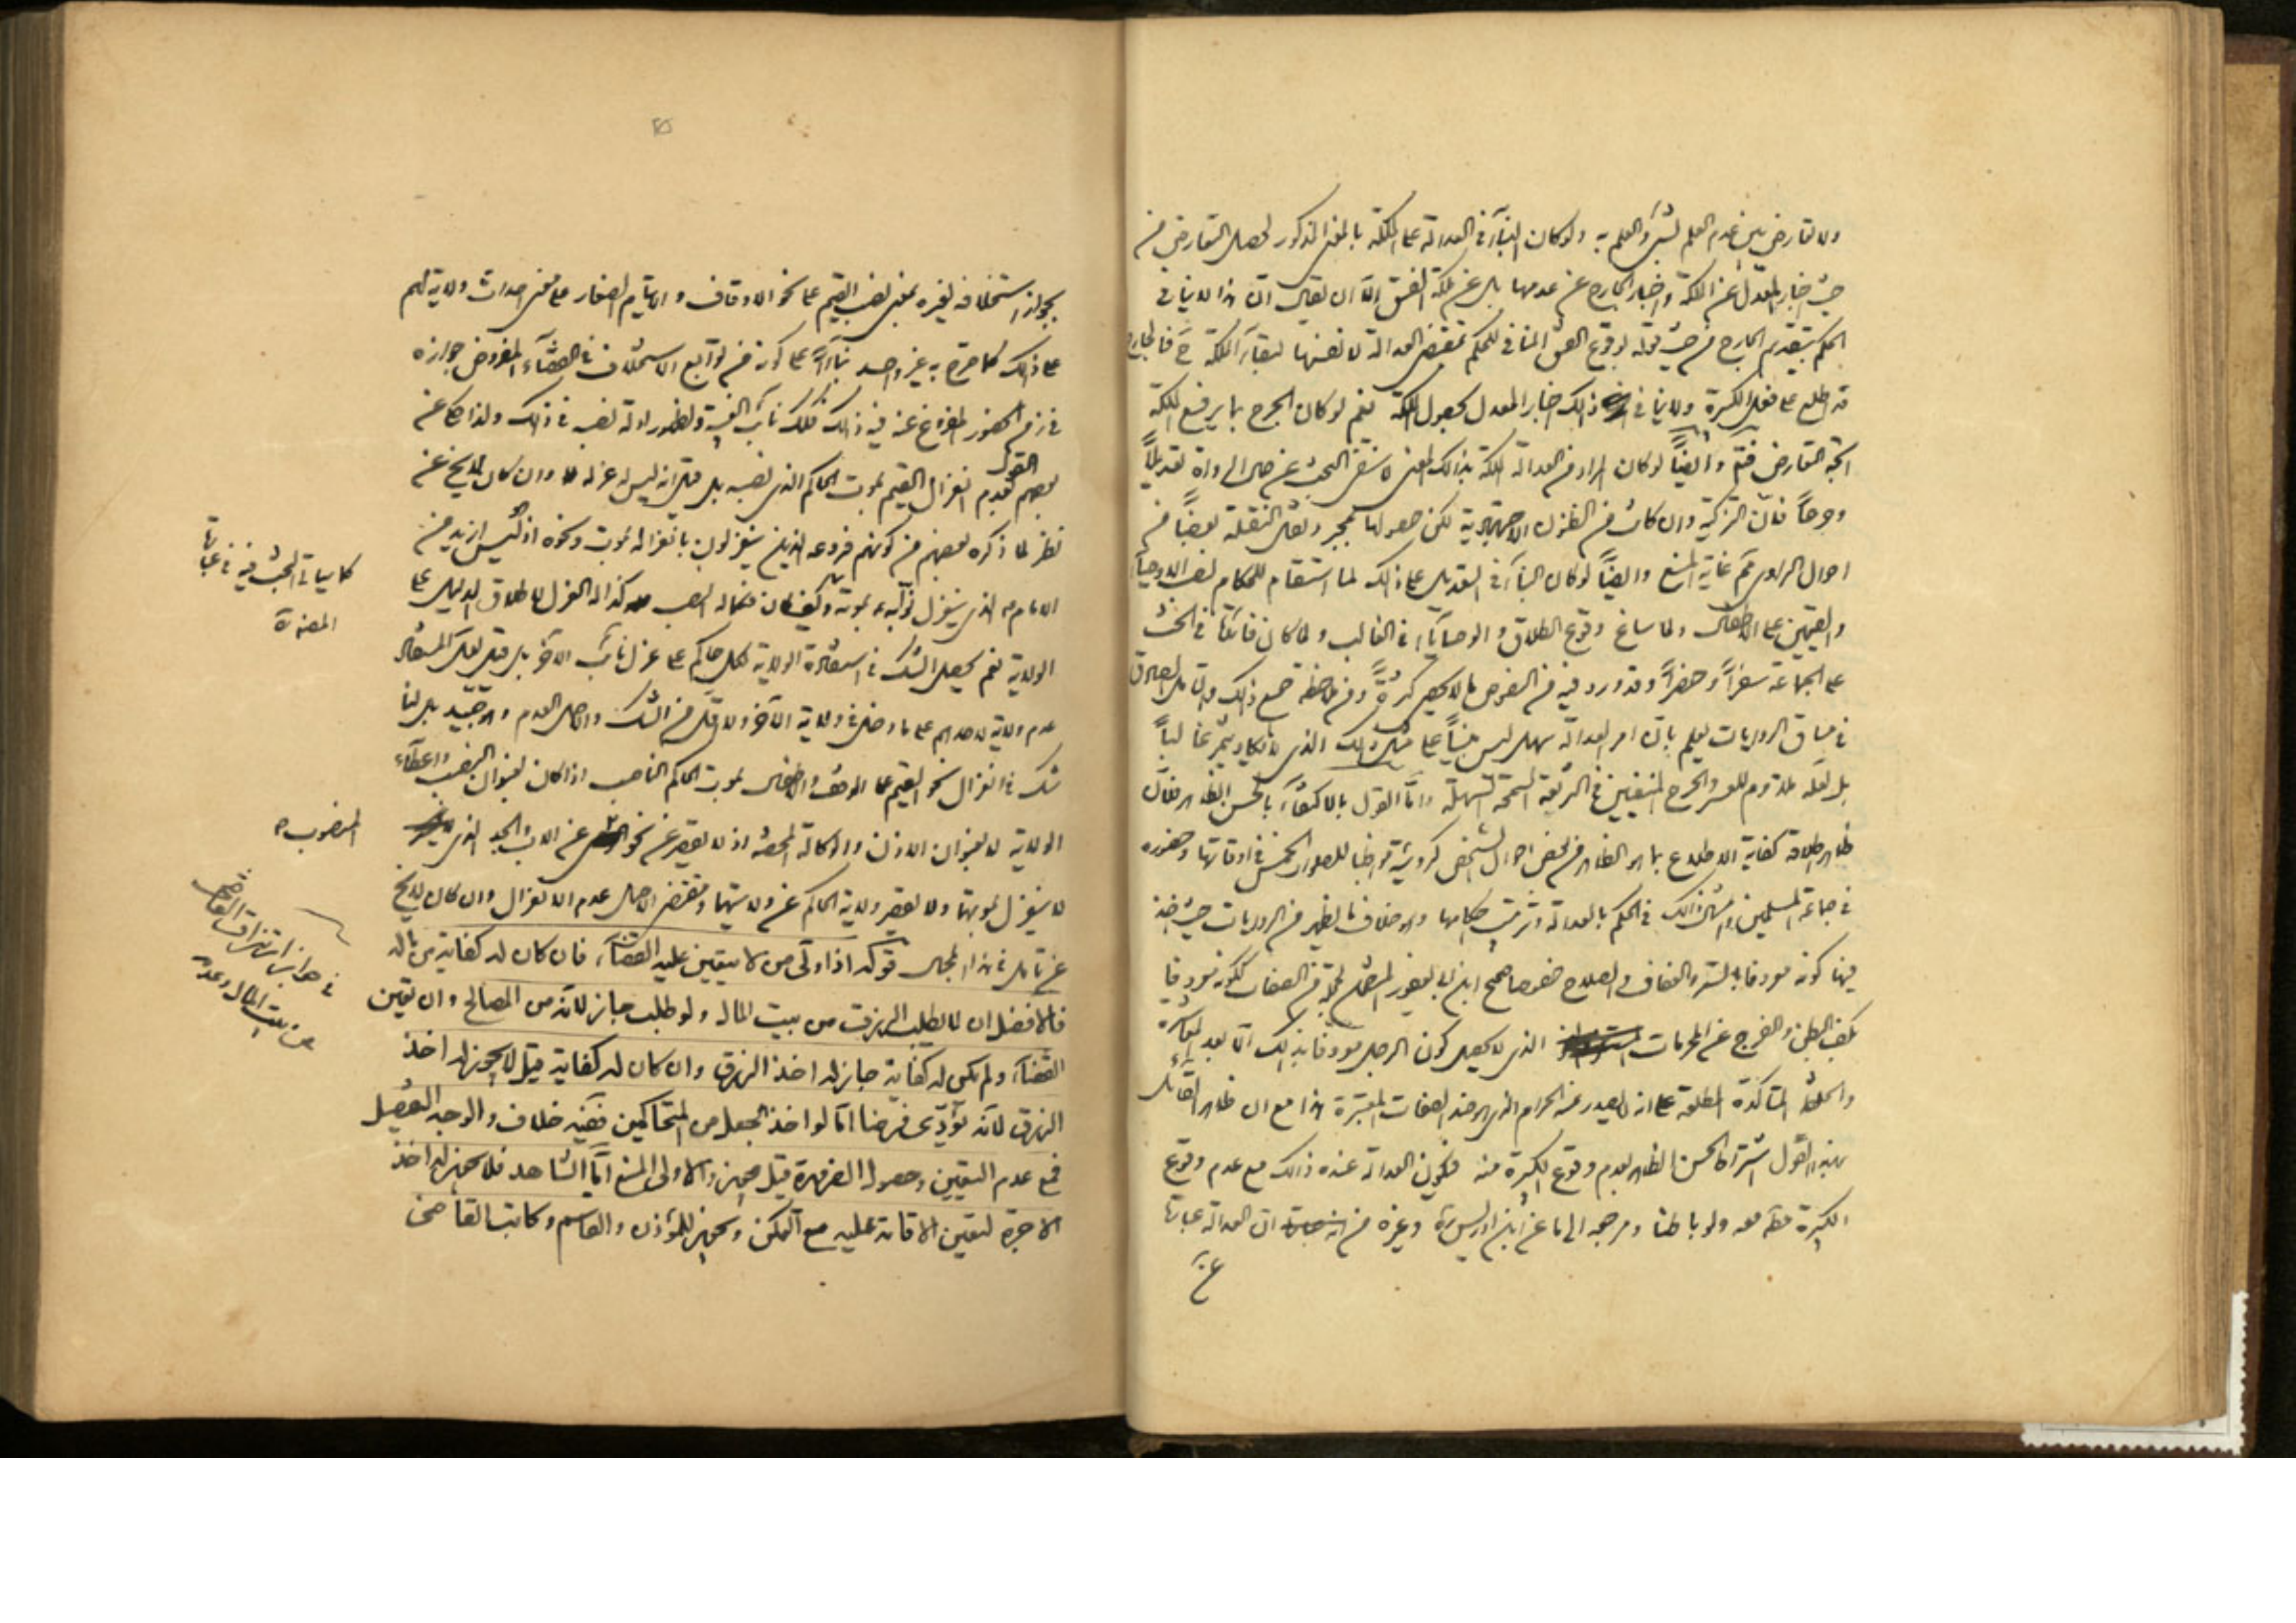 ولا تعارض بين عدم العلم بشئ والعلم به ولو كان البناء في العدالة على الملكة بالمعنى المذكور لحصل التعارض من
حيث اخبار المعدل عن الملكة واخبار الجارح عن عدمها بل عن ملكة الفسق الا ان يقال ان هذا لا ينافي
الحكم بتقديم الجارح من حيث قوله بوقوع الفسق المنافي للحكم بمقتضى العدالة لا نفسها لبقاء الملكة ح فالجارح
قد اطلع على فعل الكبيرة ولا ينافي ذلك اخبار المعدل بحصول الملكة نعم لو كان الجرح بما يرفع الملكة
اتجه التعارض فتم وايضاً لو كان المراد من العدالة الملكة بذلك المعنى لا نتفى البحث عن حال الرواة تعديلاً
وجرحاً فان التزكية وان كانت من الظنون الاجتهادية لكن حصولها بمجرد نقل النقلة بعضاً من
احوال الراوي مم غاية المنع وايضاً لو كان البناء في التعديل على ذلك لما استقام للحكام نصب الاوصياء
والقيمين على الاطفال ولما ساغ وقوع الطلاق والوصايا في الغالب ولما كان فائقا في الحث
على الجماعة سفراً وحضراً وقد ورد فيه من النصوص ما لا يحصى كثرة ومن لاحظ جميع ذلك وتأمل الصادق
في مساق الروايات يعلم بان امر العدالة سهل ليس مبنياً على مثل ذلك الذي لا يكاد يتم غالباً
بل لعله ملزوم للعسر والحرج المنفيين في الشريعة السمحة السهلة واما القول بالاكتفاء بالحسن الظاهر فقال
ظاهر اطلاقه كفاية الاطلاع بما هو الظاهر من بعض احوال الشخص كرؤيته مواظبا للصلوات الخمس في اوقاتها وحضوره
في جماعة المسلمين وامثال ذلك في الحكم بالعدالة وترتيب احكامها وهو خلاف ما يظهر من الروايات حيث اخذ
فيها كونه معروفا بالستر والعفاف والصلاح خصوصا صحيح ابن ابي يعفور المشتمل لجملة من الصفات ككونه معروفا
بكف البطن والفرج عن المحرمات الذي لا يحصل كون الرجل معروفا بذلك الا بعد المعاشرة
والخلطة المتاكدة المطلعة على انه لا يصدر عنه الحرام الذي هو ضد الصفات المعتبرة هذا مع ان ظاهر القائل
بهذا القول اشتراط الحسن الظاهر لعدم وقوع الكبيرة منه فيكون العدالة عنده ذلك مع عدم وقوع
الكبيرة منه معه ولو باطنا ومرجعه الى ما عن ابن ادريس ره وغيره من ان العدالة عبارة
عن
بجواز استخلافه لغيره بمعنى نصب القيم على نحو الاوقاف والايتام الصغار على معنى احداث ولاية لهم
على ذلك كما صرح به غير واحد بناءً على كونه من توابع الاستخلاف في القضاء المفروض جوازه
في زمن الحضور المفروغ عنه فيه ذلك فكذلك نائب الغيبة ولظهور ادلة نصبه في ذلك ولذا حكى عن
بعضهم القول بعدم انعزال القيم بموت الحاكم الذي نصبه بل قيل انه ليس له عزله وان كان لا يخ عن
نظر لما ذكره بعضهم من كونهم فروعه الذين ينعزلون بانعزاله بموت ونحوه اذ ليس ازيد من
الامام الذي ينعزل نوابه بموته وكيف كان فكما له النصب كذا له العزل لاطلاق الدليل على
الولاية نعم يحصل الشك في استفادة الولاية لكل حاكم على عزل نائب الآخر بل قد يقال المستفاد
عدم ولاية لاحدهم على ما دخل في ولاية الآخر ولا اقل من الشك والاصل العدم وهو جيد بل لنا
شك في انعزال نحو القيم على الوقف والاطفال بموت الحاكم الناصب اذا كان بعنوان النصب واعطاء
الولاية لا بعنوان الاذن والوكالة المحضة اذ لا يقصر عن نحو عن الاب والجد الذي
لا ينعزل بموتهما ولا يقصر ولاية الحاكم عن ولايتهما ومقتضى الاصل عدم الانعزال وان كان لا يخ
عن تأمل في هذا المجال قوله اذا ولى من لا يتعين عليه القضاء، فان كان له كفاية من ماله
فالافضل ان لا يطلب الرزق من بيت المال ولو طلب جاز لانه من المصالح وان تعين
القضاء ولم يكن له كفاية جاز له اخذ الرزق وان كان له كفاية قيل لا يجوز له اخذ
الرزق لانه يؤدى فرضا اما لو اخذ الجعل من المتحاكمين ففيه خلاف والوجه التفصيل
فمع عدم التعيين وحصول الضرورة قيل يجوز والاولى المنع اما الشاهد فلا يجوز له اخذ
الاجرة لتعين الاقامة عليه مع التمكن ويجوز للمؤذن والقاسم وكاتب القاضى
كما سياتي البحث فيه في عبارة
المصنف ره
المنصوب
في جواز ارتزاق القاضى
من بيت المال وعدمه